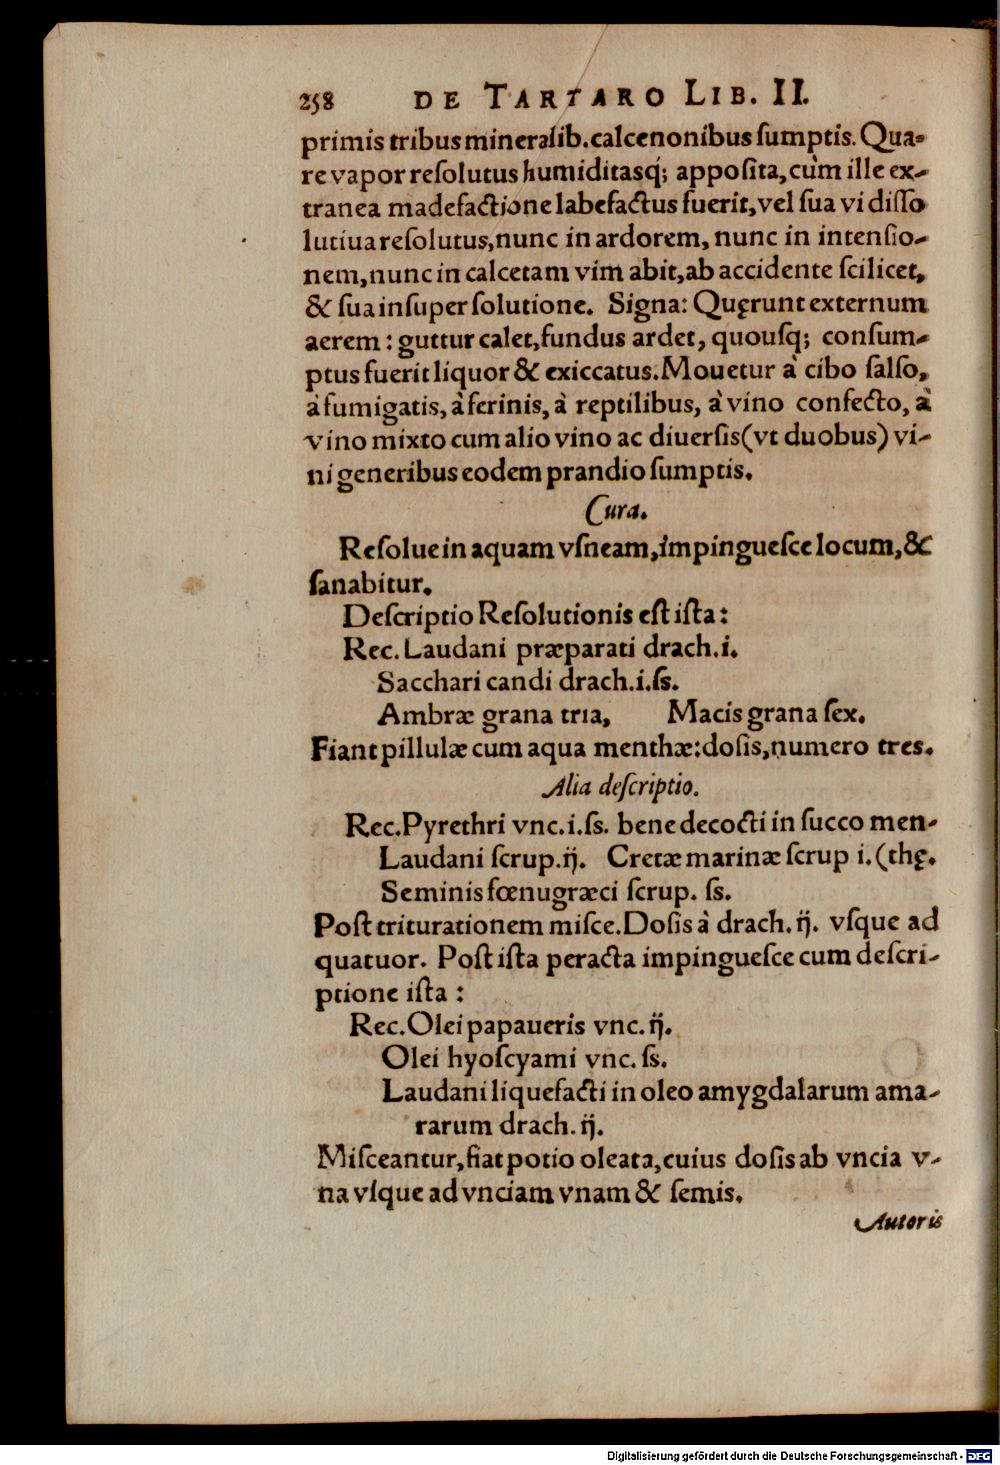 258 DE TARTARO LIB. II.
primis tribus mineralib. calcenonibus ſumptis. Qua⸗
re vapor reſolutus humiditasq́; appoſita, cùm ille ex-
tranea madefactione labefactus fuerit, vel ſua vi diſſo
lutiua reſolutus, nunc in ardorem, nunc in intenſio-
nem, nunc in calcetam vim abit, ab accidente ſcilicet,
& ſua inſuper ſolutione. Signa: Quęrunt externum
aerem: guttur calet, fundus ardet, quouſq; conſum-
ptus fuerit liquor & exiccatus. Mouetur à cibo ſalſo,
à fumigatis, à ferinis, à reptilibus, à vino confecto, à
vino mixto cum alio vino ac diuerſis (vt duobus) vi-
ni generibus eodem prandio ſumptis.
Cura.
Reſolue in aquam vſneam, impingueſce locum, &
ſanabitur.
Deſcriptio Reſolutionis eſt iſta:
Rec. Laudani præparati drach. i.
Sacchari candi drach. i. ſs.
Ambræ grana tria, Macis grana ſex.
Fiant pillulæ cum aqua menthæ: doſis, numero tres.
Alia deſcriptio.
Rec. Pyrethri vnc. i. ſs. bene decocti in ſucco men-
Laudani ſcrup. ij. Cretæ marinæ ſcrup i. (thę.
Seminis fœnugræci ſcrup. ſs.
Poſt triturationem miſce. Doſis à drach. ij. vſque ad
quatuor. Poſt iſta peracta impingueſce cum deſcri-
ptione iſta:
Rec. Olei papaueris vnc. ij.
Olei hyoſcyami vnc. ſs.
Laudani liquefacti in oleo amygdalarum ama-
rarum drach. ij.
Miſceantur, fiat potio oleata, cuius doſis ab vncia v-
na vſque ad vnciam vnam & ſemis.
Autoris
Digitalisierung gefördert durch die Deutsche Forschungsgemeinschaft - DFG